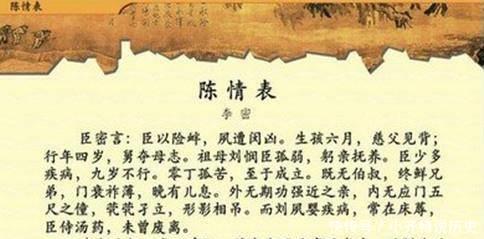 陈情表
陈情表
李密
臣密言：臣以险衅，夙遭闵凶。生孩六月，慈父见背；
行年四岁，舅夺母志。祖母刘悯臣孤弱，躬亲抚养。臣少多
疾病，九岁不行。零丁孤苦，至于成立。既无伯叔，终鲜兄
弟，门衰祚薄，晚有儿息。外无期功强近之亲，内无应门五
尺之僮，茕茕孑立，形影相吊。而刘夙婴疾病，常在床蓐，
臣侍汤药，未曾废离。